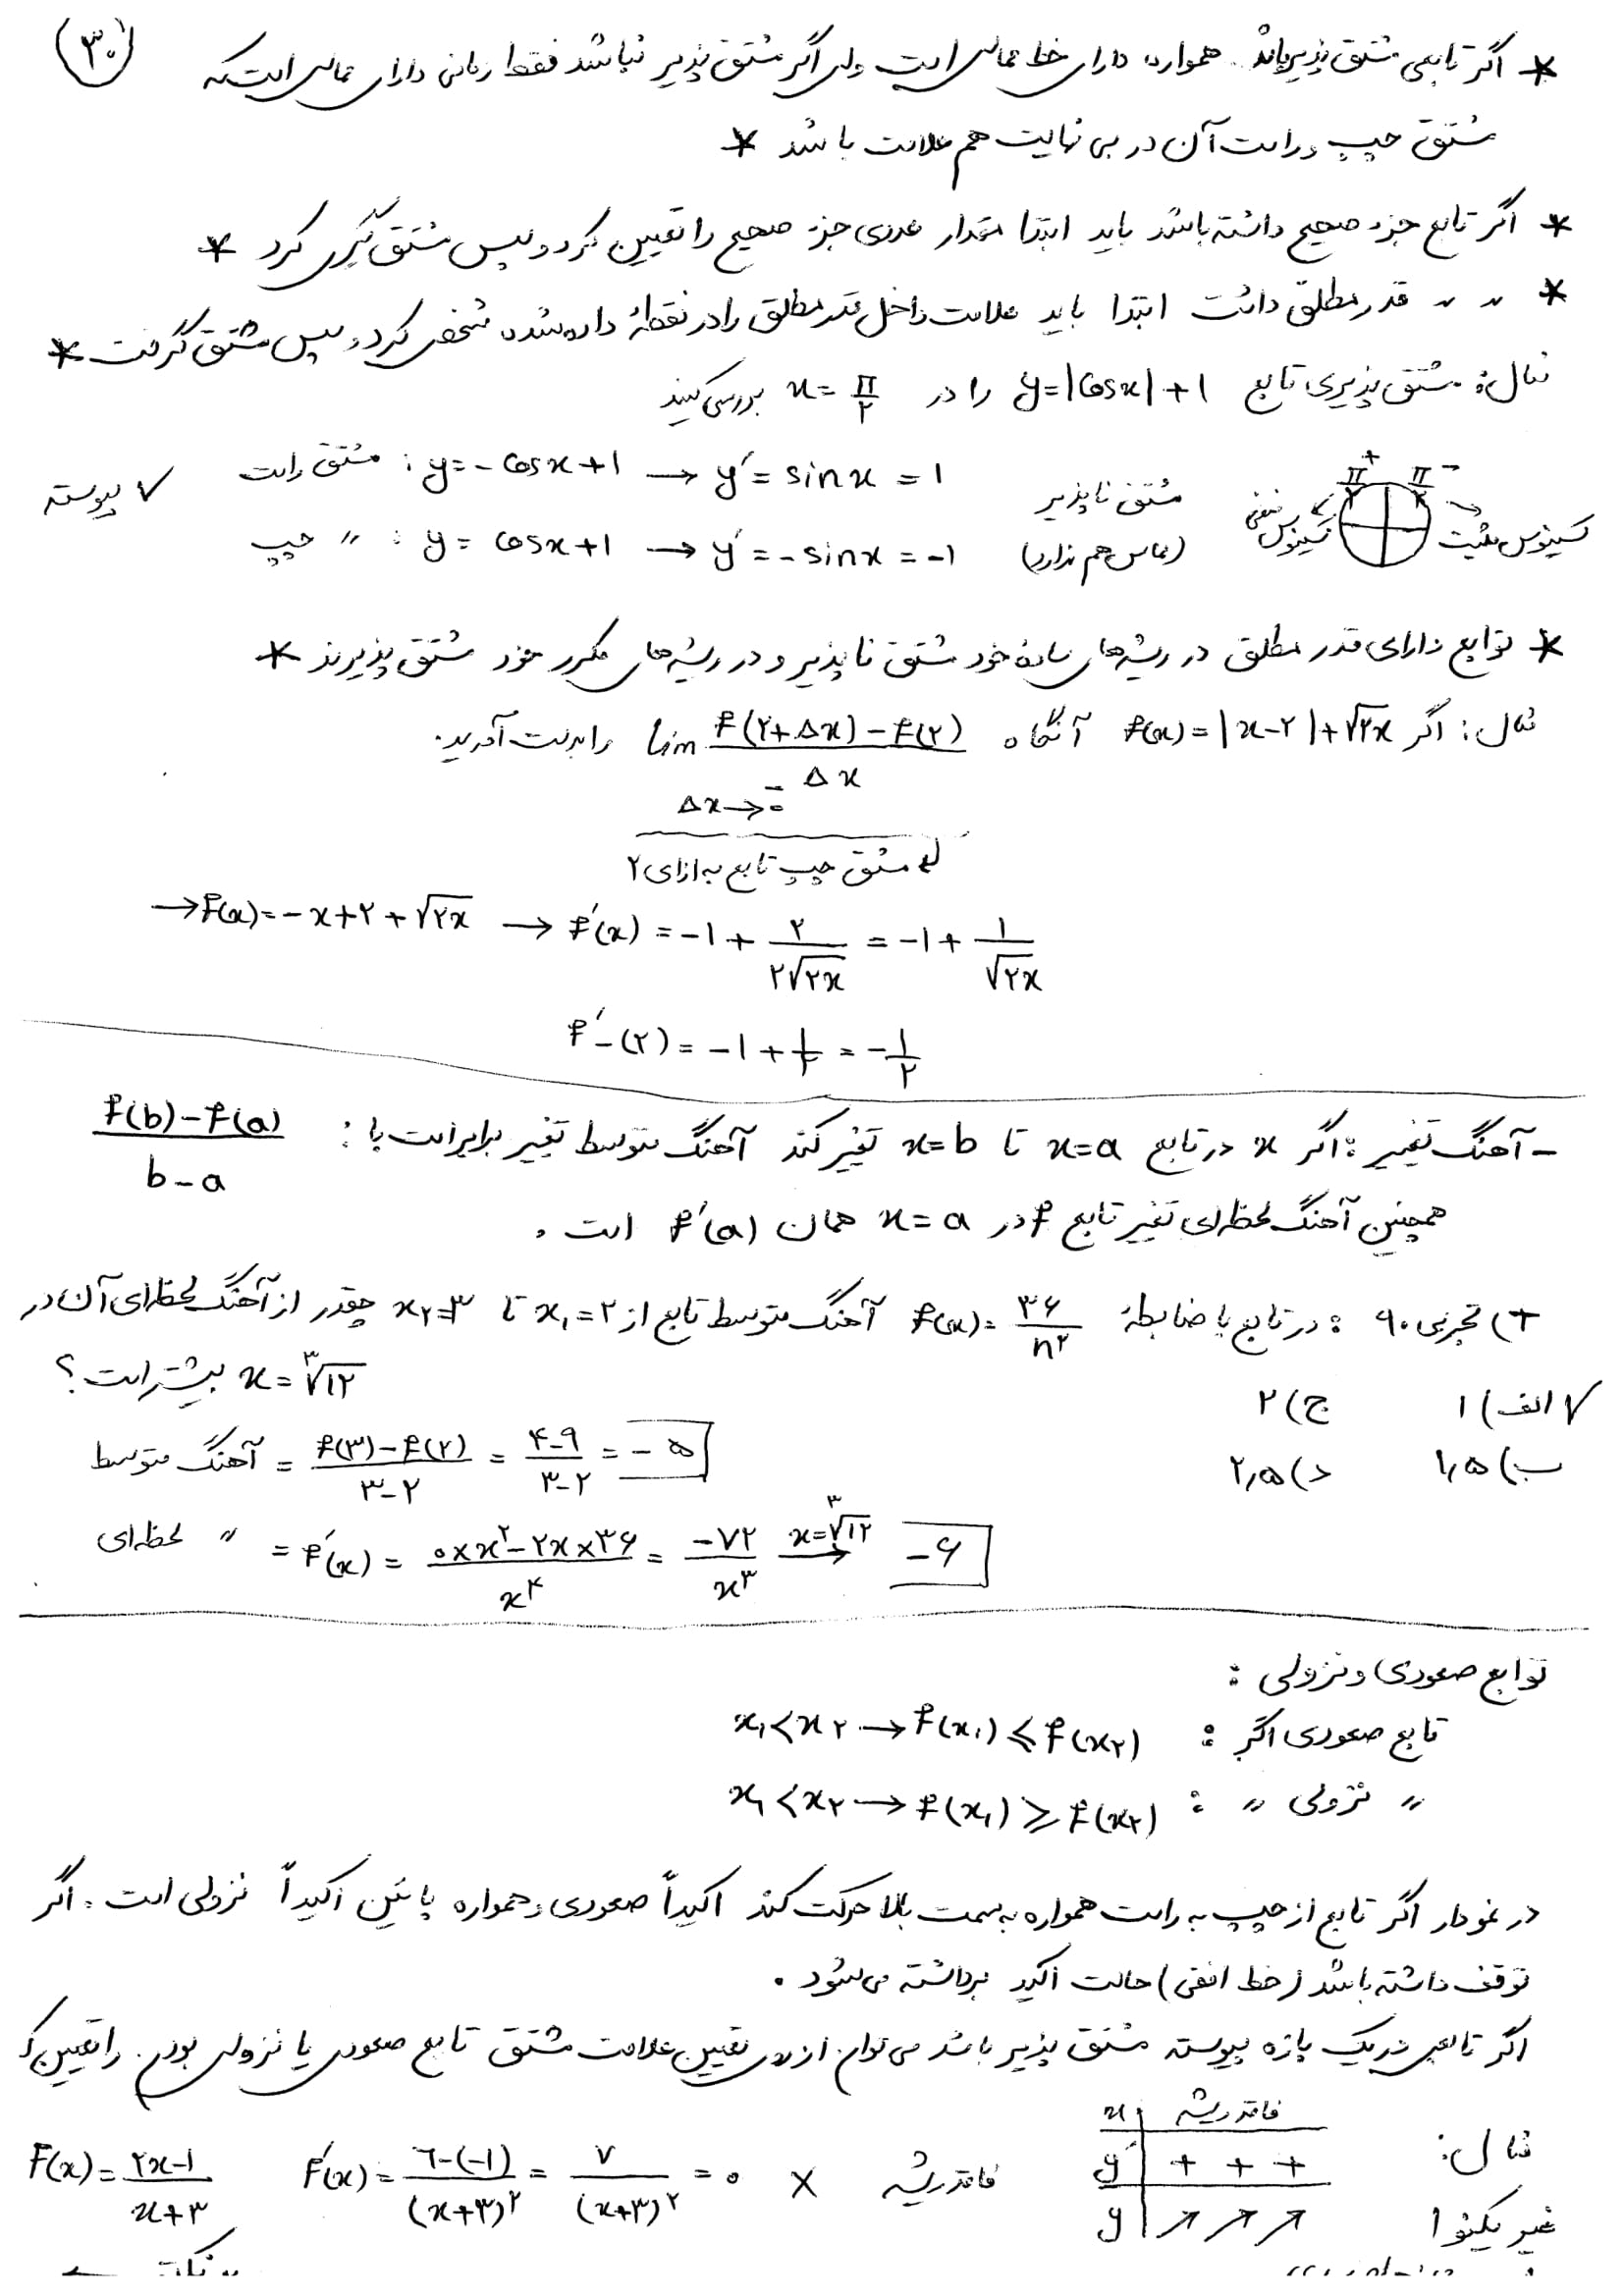 ۳۰
* اگر تابعی مشتق پذیر باشد همواره دارای خط مماس است ولی اگر مشتق پذیر نباشد فقط زمانی دارای مماس است که
مشتق چپ و راست آن در بی نهایت هم علامت باشد *
* اگر تابع جزء صحیح داشته باشد باید ابتدا مقدار عددی جزء صحیح را تعیین کرد و سپس مشتق گیری کرد *
* 〃 〃 قدر مطلق داشت ابتدا باید علامت داخل قدر مطلق را در نقطهٔ داده شده مشخص کرد و سپس مشتق گرفت *
مثال: مشتق پذیری تابع y=|cosx|+1 را در x=π/۲ بررسی کنید
مشتق راست : y=-cosx+1 → y′=sinx=1
〃 چپ : y=cosx+1 → y′=-sinx=-1
✓ پیوسته
مشتق ناپذیر
(مماس هم ندارد)
π/۲⁺ π/۲⁻
کسینوس منفی
کسینوس مثبت
* توابع دارای قدر مطلق در ریشه‌های سادهٔ خود مشتق ناپذیر و در ریشه‌های مکرر خود مشتق پذیرند *
مثال: اگر f(x)=|x-۲|+√۲x آنگاه lim Δx→۰⁻ (f(۲+Δx)-f(۲))/Δx را بدست آورید.
مشتق چپ تابع به ازای ۲
→ f(x)=-x+۲+√۲x → f′(x)=-1+۲/(۲√۲x)=-1+1/√۲x
f′-(۲)=-1+1/۲=-1/۲
- آهنگ تغییر: اگر x در تابع x=a تا x=b تغیر کند آهنگ متوسط تغیر برابر است با: (f(b)-f(a))/(b-a)
همچنین آهنگ لحظه‌ای تغیر تابع f در x=a همان f′(a) است.
ت) تجربی ۹۰: در تابع با ضابطهٔ f(x)=۳۶/n² آهنگ متوسط تابع از x₁=۲ تا x₂=۳ چقدر از آهنگ لحظه‌ای آن در
x=³√۱۲ بیشتر است؟
✓ الف) ۱ ج) ۲
ب) ۱,۵ د) ۲,۵
آهنگ متوسط = (f(۳)-f(۲))/(۳-۲) = (۴-۹)/(۳-۲) = -۵
〃 لحظه‌ای = f′(x) = (۰×x²-۲x×۳۶)/x⁴ = -۷۲/x³ x=³√۱۲ → -۶
توابع صعودی و نزولی :
تابع صعودی اگر : x₁<x₂ → f(x₁)≤f(x₂)
〃 نزولی 〃 : x₁<x₂ → f(x₁)≥f(x₂)
در نمودار اگر تابع از چپ به راست همواره به سمت بالا حرکت کند اکیداً صعودی و همواره پائین اکیداً نزولی است. اگر
توقف داشته باشد (خط افقی) حالت اکید برداشته می‌شود.
اگر تابعی در یک بازه پیوسته مشتق پذیر باشد می‌توان از روی تعیین علامت مشتق تابع صعودی یا نزولی بودن را تعیین
مثال: F(x)=(۲x-1)/(x+۳) F′(x)=(۶-(-1))/(x+۳)²=۷/(x+۳)²=۰ × فاقد ریشه
x فاقد ریشه
y′ + + +
y ↗ ↗ ↗
غیر یکنوا